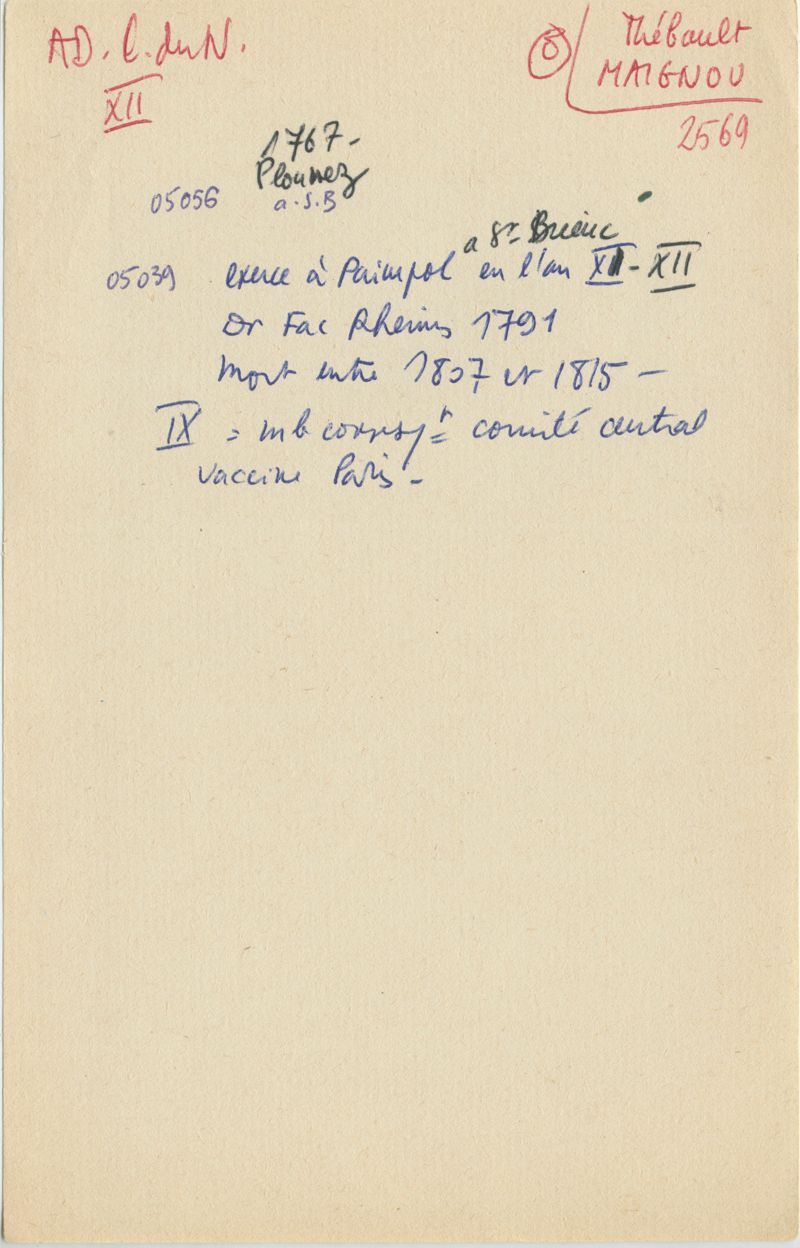 AD. C. du N.
XII
Thébault
MAIGNOU
2569
1767 -
Plounez
05056 a.S.B
a St Brieuc
05039 exerce à Paimpol en l'an XI - XII
Dr Fac Rheims 1791
Mort entre 1807 et 1815 -
IX = mb corresp t comité central
vaccine Paris -